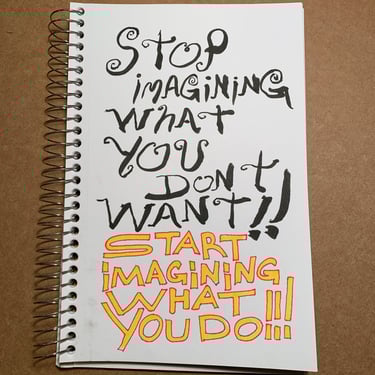 STOP
iMAGiNiNG
WHAT
YOU
DONT
WANT!!
START
iMAGiNiNG
WHAT
YOU DO!!!